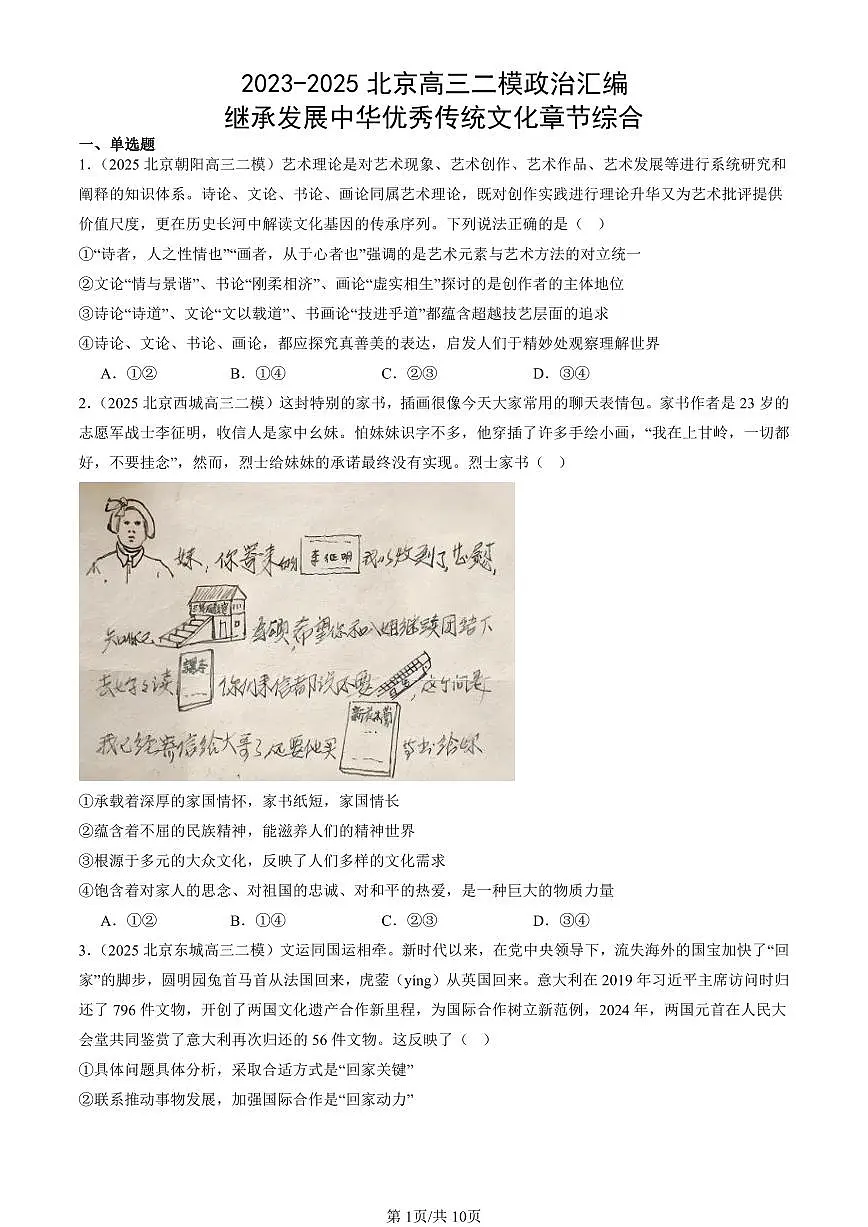 2023-2025 北京高三二模政治汇编
继承发展中华优秀传统文化章节综合
一、单选题
1.（2025 北京朝阳高三二模）艺术理论是对艺术现象、艺术创作、艺术作品、艺术发展等进行系统研究和
阐释的知识体系。诗论、文论、书论、画论同属艺术理论，既对创作实践进行理论升华又为艺术批评提供
价值尺度，更在历史长河中解读文化基因的传承序列。下列说法正确的是（ ）
①“诗者，人之性情也”“画者，从于心者也”强调的是艺术元素与艺术方法的对立统一
②文论“情与景谐”、书论“刚柔相济”、画论“虚实相生”探讨的是创作者的主体地位
③诗论“诗道”、文论“文以载道”、书画论“技进乎道”都蕴含超越技艺层面的追求
④诗论、文论、书论、画论，都应探究真善美的表达，启发人们于精妙处观察理解世界
A．①② B．①④ C．②③ D．③④
2.（2025 北京西城高三二模）这封特别的家书，插画很像今天大家常用的聊天表情包。家书作者是 23 岁的
志愿军战士李征明，收信人是家中幺妹。怕妹妹识字不多，他穿插了许多手绘小画，“我在上甘岭，一切都
好，不要挂念”，然而，烈士给妹妹的承诺最终没有实现。烈士家书（ ）
妹，你寄来的 李征明 我以收到了
希望你和八姐继续团结下
去好好读 你们来信都说不要 ，这个问题
我已经寄信给大哥了，还要他买 新花木兰 等书给你
①承载着深厚的家国情怀，家书纸短，家国情长
②蕴含着不屈的民族精神，能滋养人们的精神世界
③根源于多元的大众文化，反映了人们多样的文化需求
④饱含着对家人的思念、对祖国的忠诚、对和平的热爱，是一种巨大的物质力量
A．①② B．①④ C．②③ D．③④
3.（2025 北京东城高三二模）文运同国运相牵。新时代以来，在党中央领导下，流失海外的国宝加快了“回
家”的脚步，圆明园兔首马首从法国回来，虎蓥（yíng）从英国回来。意大利在 2019 年习近平主席访问时归
还了 796 件文物，开创了两国文化遗产合作新里程，为国际合作树立新范例，2024 年，两国元首在人民大
会堂共同鉴赏了意大利再次归还的 56 件文物。这反映了（ ）
①具体问题具体分析，采取合适方式是“回家关键”
②联系推动事物发展，加强国际合作是“回家动力”
第 1页/共 10页